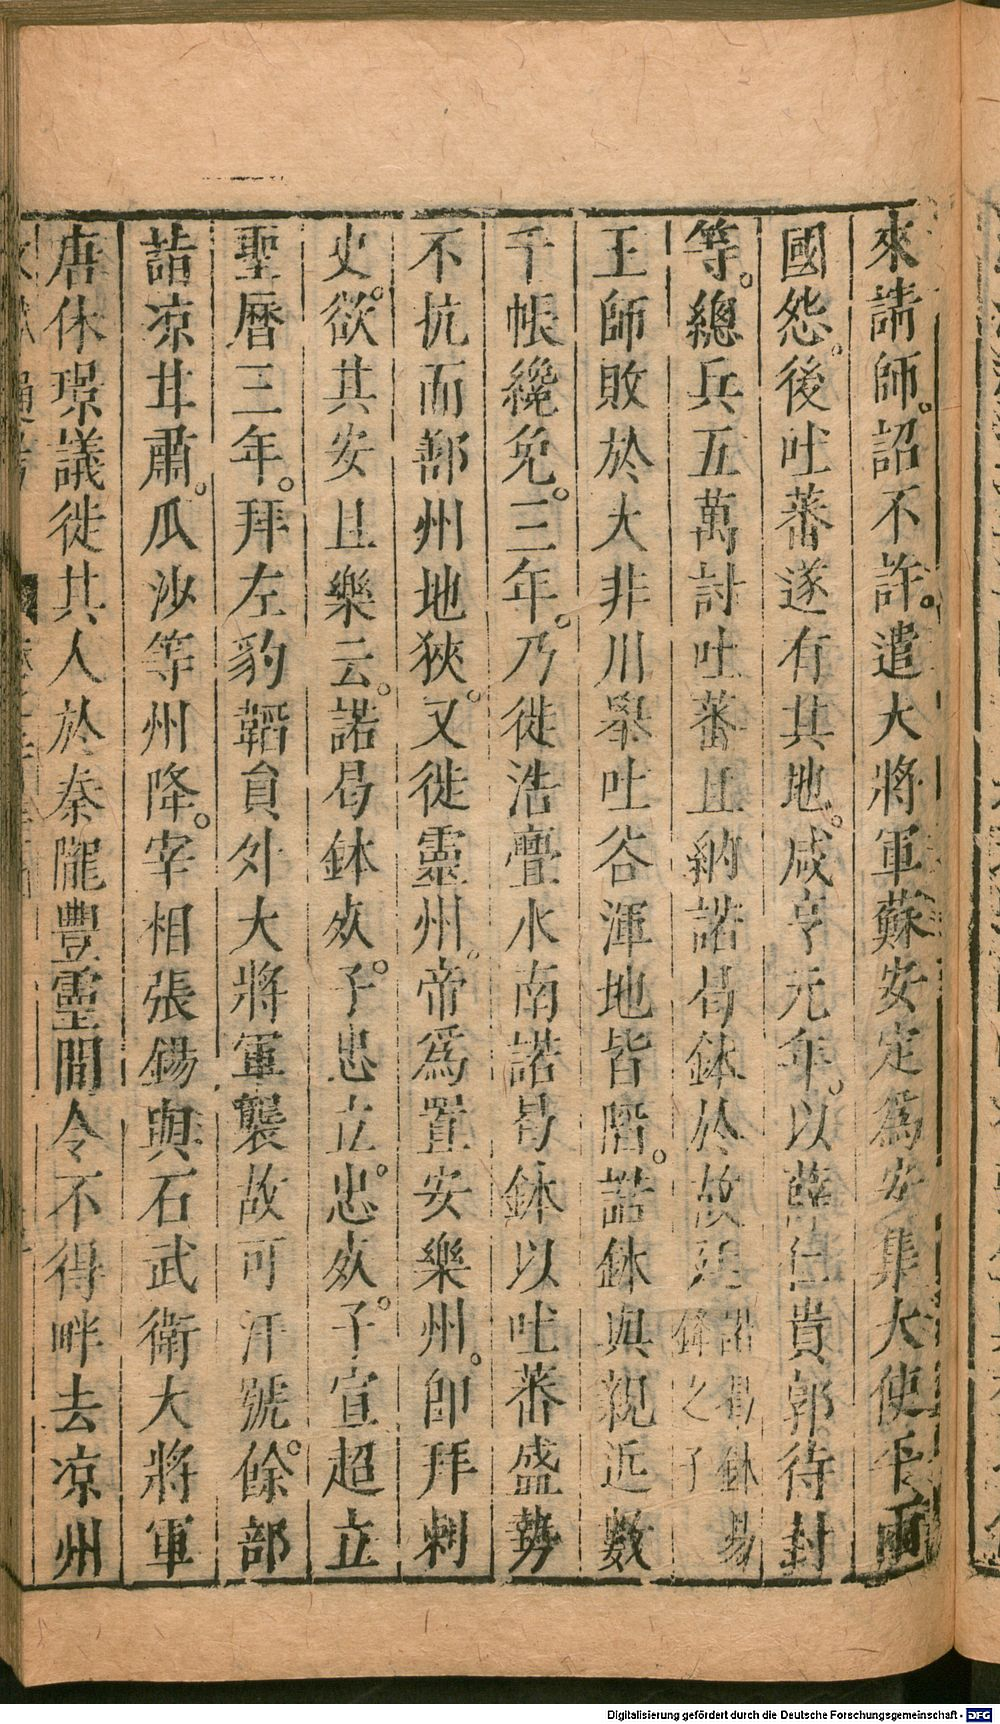 來請師。詔不許。遣大將軍蘇安定爲安集大使平兩
國怨。後吐蕃遂有其地。咸亨元年。以薛仁貴郭待封
等。總兵五萬討吐蕃且納諾曷鉢於故廷諾曷鉢易鋒之子
王師敗於大非川舉吐谷渾地皆陷。諾鉢與親近數
千帳纔免。三年。乃徙浩亹水南諾曷鉢以吐蕃盛勢
不抗而鄯州地狹。又徙靈州。帝爲置安樂州。卽拜刺
史。欲其安且樂云。諾曷鉢𣦸。子忠立。忠𣦸。子宣超立
聖曆三年。拜左豹韜員外大將軍襲故可汗號。餘部
詣凉甘肅。瓜沙等州降。宰相張錫與石武衛大將軍
唐休璟議徙其人於秦隴豐靈間令不得畔去凉州
Digitalisierung gefördert durch die Deutsche Forschungsgemeinschaft - DFG